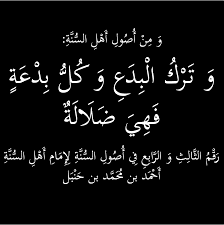 وَ مِنْ أُصُولِ أَهْلِ السُّنَّةِ:
وَ تَرْكُ الْبِدَعِ وَ كُلُّ بِدْعَةٍ
فَهِيَ ضَلَالَةٌ
رَقْمُ الثَّالِثِ وَ الرَّابِعِ فِي أُصُولِ السُّنَّةِ لِإِمَامِ أَهْلِ السُّنَّةِ
أَحْمَدَ بن مُحَمَّدِ بن حَنْبَل